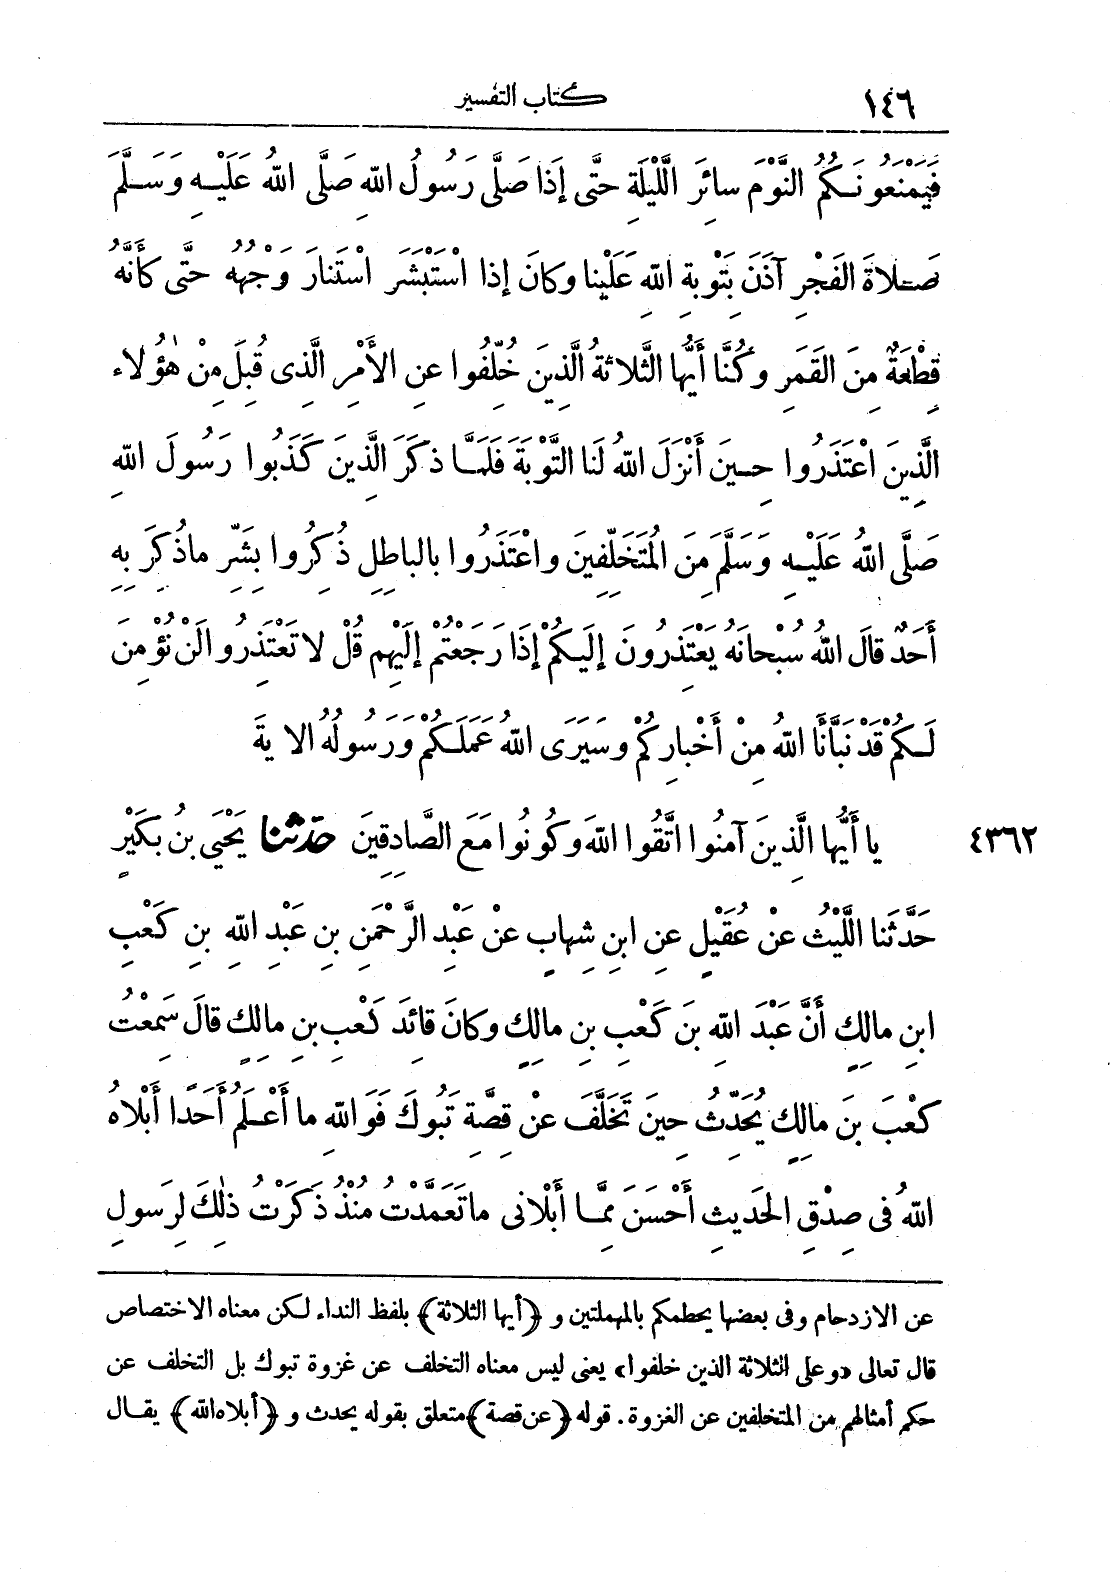 ١٤٦
كتاب التفسير
فَيَمْنَعُونَكُمُ النَّوْمَ سائِرَ اللَّيْلَةِ حتَّى إذَا صَلَّى رَسُولُ اللهِ صَلَّى اللهُ عَلَيْهِ وَسَلَّمَ
صَلاةَ الفَجْرِ آذَنَ بِتَوْبَةِ اللهِ عَلَيْنا وكانَ إذا اسْتَبْشَرَ اسْتَنارَ وَجْهُهُ حتَّى كأنَّهُ
قِطْعَةٌ مِنَ القَمَرِ وكُنَّا أيُّها الثَّلاثةُ الَّذِينَ خُلِّفُوا عنِ الأَمْرِ الَّذِى قُبِلَ مِنْ هٰؤُلاء
الَّذِينَ اعْتَذَرُوا حِينَ أنْزَلَ اللهُ لَنا التَّوْبَةَ فَلَمَّا ذكَرَ الَّذِينَ كَذَبُوا رَسُولَ اللهِ
صَلَّى اللهُ عَلَيْهِ وَسَلَّمَ مِنَ المُتَخَلِّفِينَ واعْتَذَرُوا بالباطِلِ ذُكِرُوا بِشَرِّ ماذُكِرَ بِهِ
أَحَدٌ قالَ اللهُ سُبْحانَهُ يَعْتَذِرُونَ إلَيكُمْ إذَا رَجَعْتُمْ إلَيْهِم قُلْ لا تَعْتَذِرُوا لَنْ نُؤْمِنَ
لَكُمْ قَدْ نَبَّأَنَا اللهُ مِنْ أَخْبارِكُمْ وسَيَرَى اللهُ عَمَلَكُمْ وَرَسُولُهُ الاَيةَ
يا أَيُّها الَّذِينَ آمنُوا اتَّقُوا اللهَ وكُونُوا مَعَ الصَّادِقِينَ حدّثنا يَحْيَى بنُ بكَيْرٍ
٤٣٦٢
حَدَّثَنا اللَّيْثُ عنْ عُقَيْلٍ عنِ ابنِ شِهابٍ عنْ عَبْدِ الرَّحْمَنِ بنِ عَبْدِ اللهِ بنِ كَعْبِ
ابنِ مالِكٍ أَنَّ عَبْدَ اللهِ بنَ كَعْبِ بنِ مالِكٍ وكانَ قائِدَ كَعْبِ بنِ مالِكٍ قالَ سَمِعْتُ
كَعْبَ بنَ مالِكٍ يُحَدِّثُ حِينَ تَخَلَّفَ عنْ قِصَّةِ تَبُوكَ فَوَاللهِ ما أَعْلَمُ أَحَدًا أَبْلاهُ
اللهُ فى صِدْقِ الحَدِيثِ أَحْسَنَ مِمَّا أَبْلانى ماتَعَمَّدْتُ مُنْذُ ذَكَرْتُ ذٰلِكَ لِرَسُولِ
عن الازدحام وفى بعضها يحطمكم بالمهملتين و ﴿أيها الثلاثة﴾ بلفظ النداء لكن معناه الاختصاص
قال تعالى «وعلى الثلاثة الذين خلفوا» يعنى ليس معناه التخلف عن غزوة تبوك بل التخلف عن
حكم أمثالهم من المتخلفين عن الغزوة. قوله ﴿عن قصة﴾ متعلق بقوله يحدث و ﴿أبلاه الله﴾ يقال